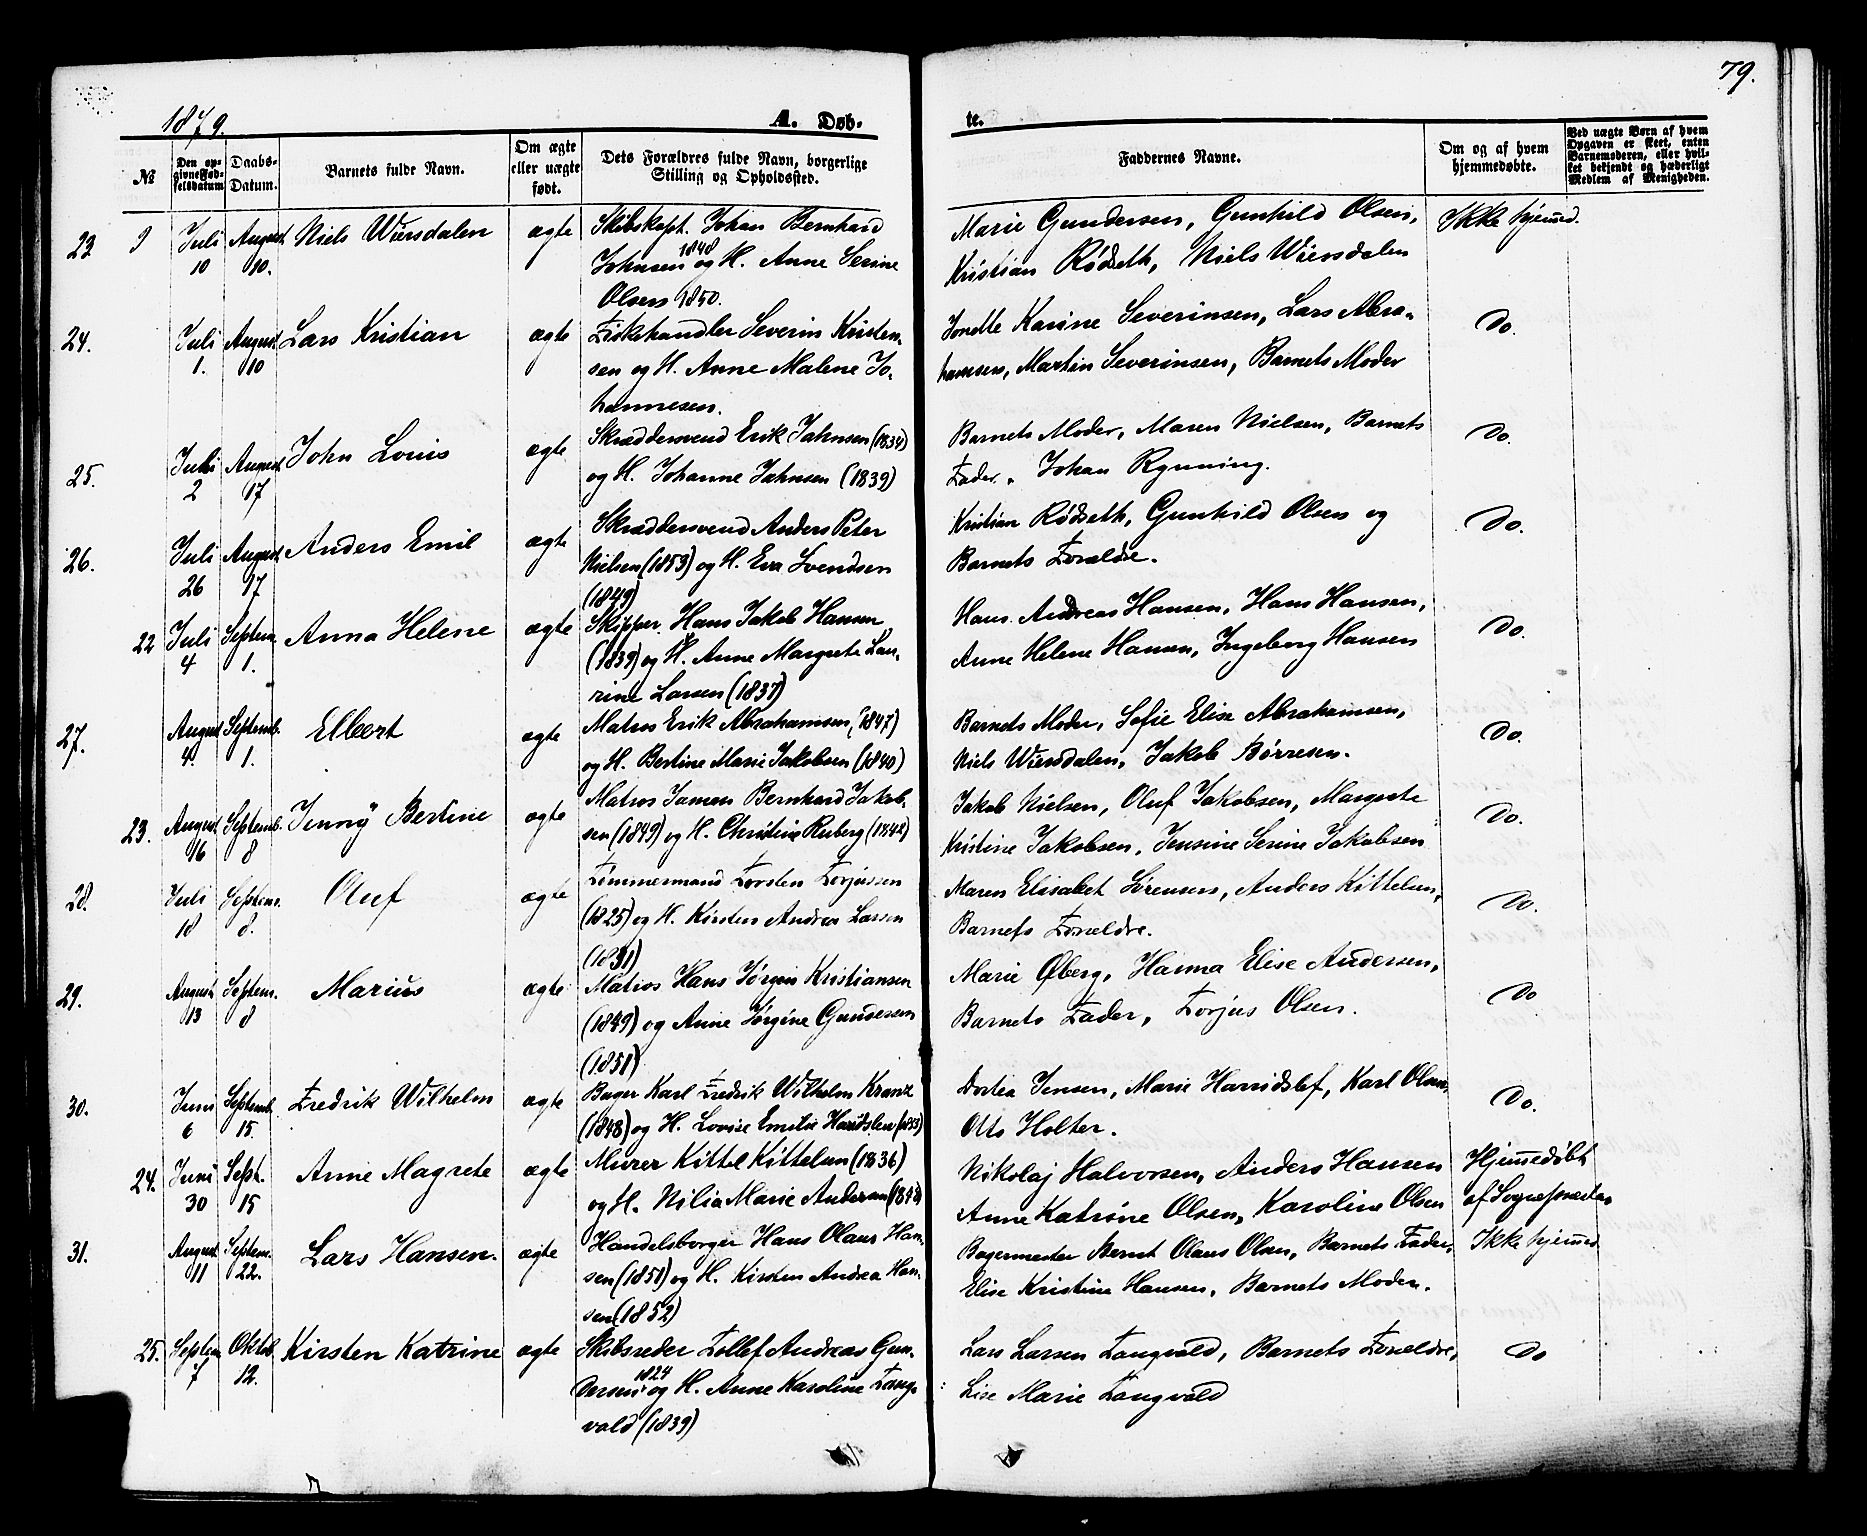 79.
1879.
A. Døb-
te.
№
Den op-
givne Fød-
selsdatum
Daabs-
Datum.
Barnets fulde Navn.
Om ægte
eller uægte
født.
Dets Forældres fulde Navn, borgerlige
Stilling og Opholdssted.
Faddernes Navne.
Om og af hvem
hjemmedøbte.
Ved uægte Børn af hvem
Opgaven er skeet, enten
Barnemoderen, eller hvil-
ket bekjendt og hæderligt
Medlem af Menigheden.
23 Juli August Niels Wiersdalen ægte Skibskapt. Johan Bernhard Marie Gundersen, Gunhild Olsen, Ikke hjemmed.
10 10. Johnsen 1848 og H. Anne Serine Kristian Rødseth, Niels Wiersdalen
Olsen 1850.
24. Juli August Lars Kristian ægte Fiskehandler Severin Kristen- Karine Severinsen, Lars Abra- Do.
1. 10 sen og H. Anne Malene Jo- hamsen, Martin Severinsen, Barnets Moder
hannesen.
25. Juli August John Louis ægte Skræddersvend Erik Jahnsen (1834) Barnets Moder, Maren Nielsen, Barnets Do.
2 17 og H. Johanne Jahnsen (1839) Fader, Johan Rynning.
26. Juli August Anders Emil ægte Skræddersvend Anders Peter Kristian Rødseth, Gunhild Olsen og Do.
26 17 Nielsen (1853) og H. Eva Svendsen Barnets Forældre.
(1849)
22 Juli Septem. Anna Helene ægte Skipper Hans Jakob Hansen Hans Andreas Hansen, Hans Hansen, Do.
4 1. (1839) og H. Anne Margrete Lau- Anne Helene Hansen, Ingeborg Hansen
rine Larsen (1837)
27. August Septemb. Elbert ægte Matros Erik Abrahamsen, (1847) Barnets Moder, Sofie Elise Abrahamsen, Do.
4. 1. og H. Bertine Marie Jakobsen (1840) Niels Wiersdalen, Jakob Børresen.
23. August Septemb. Jenny Bertine ægte Matros Jaman Bernhard Jakob- Jakob Nielsen, Oluf Jakobsen, Margrete Do.
16 8 sen (1849) og H. Christine Ruberg (1842) Kristine Jakobsen, Jensine Serine Jakobsen
28. Juli Septem. Oluf ægte Tømmermand Torsten Torjussen Maren Elisabet Sørensen, Anders Kittelsen, Do.
18 8. (1825) og H. Kirsten Andrea Larsen Barnets Forældre.
(1831)
29. August Septem. Marius ægte Matros Hans Jørgen Kristiansen Marie Øberg, Hanna Elise Andersen, Do
13 8 (1849) og Anne Jørgine Gundersen Barnets Fader, Torjus Olsen.
(1851)
30. Juni Septemb. Fredrik Wilhelm ægte Bager Karl Fredrik Wilhelm Kranz Dortea Jensen, Marie Harridslef, Karl Olsen, Do.
6 15. (1848) og H. Lovise Emilie Haridslev (1853) Otto Holter.
24. Juni Sept. Anne Magrete ægte Murer Kittel Kittelsen (1836) Nikolaj Halvorsen, Anders Hansen Hjemmedøbt
30 15 og H. Nilia Marie Andersen Anne Katrine Olsen, Karoline Olsen af Sognepræsten
31. August Septem. Lars Hansen. ægte Handelsborger Hans Olaus Han- Bagermester Bernt Olaus Olsen, Barnets Fader, Ikke hjemmed
11 22. sen (1851) og H. Kirsten Andrea Han- Elise Kristine Hansen, Barnets Moder.
sen (1852)
25. Septem Oktob. Kirsten Katrine ægte Skibsreder Tollef Andreas Gun- Lars Larsen Tangvald, Barnets Forældre, Do
7 12. dersen 1824 og H. Anne Karoline Tang- Lise Marie Tangvald
vald (1839)